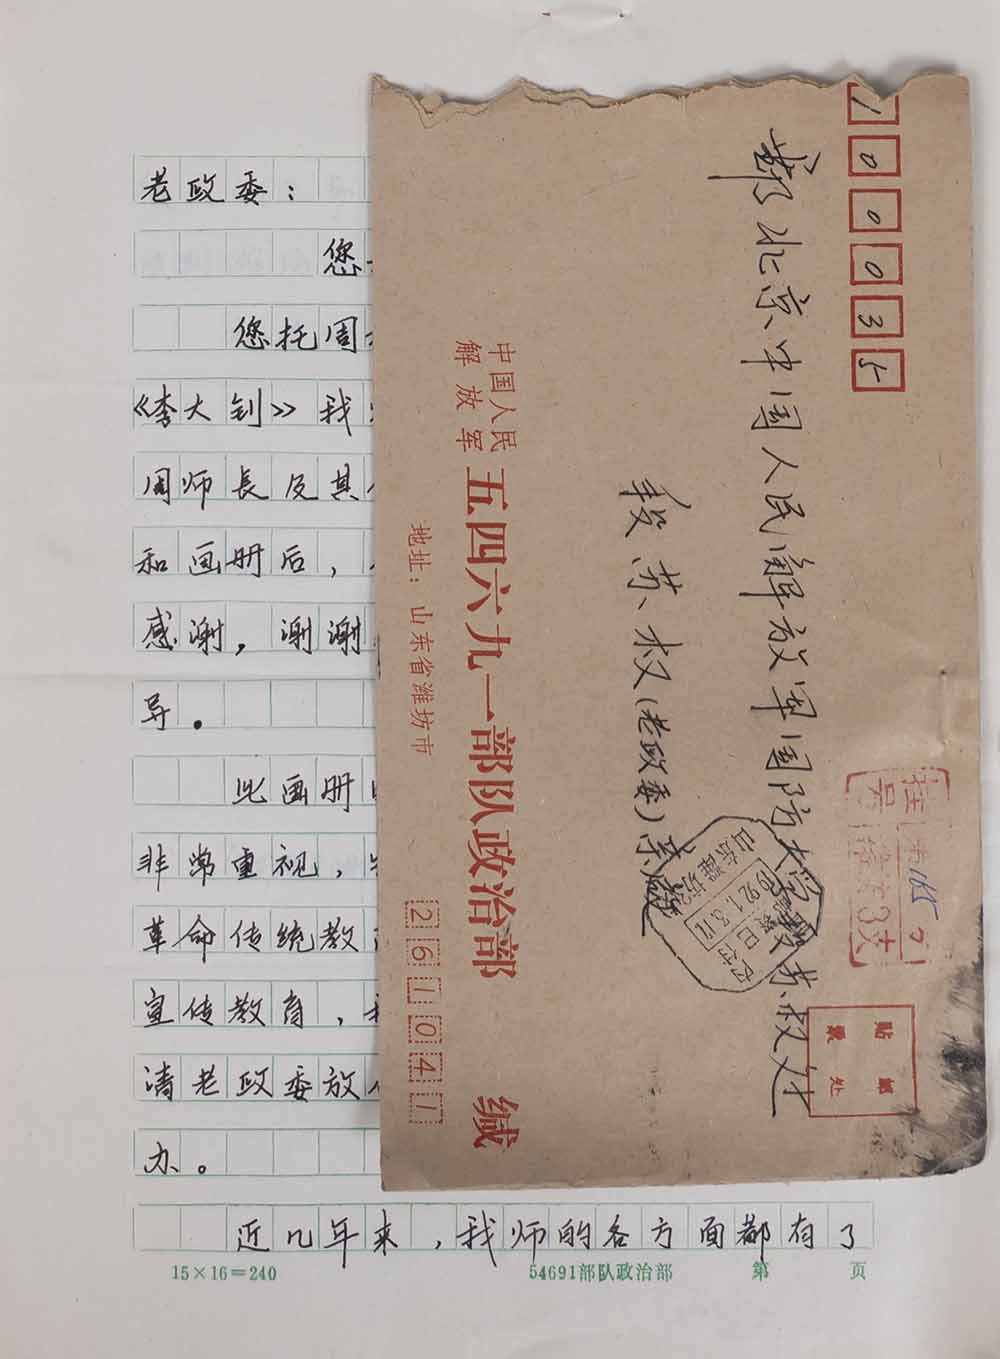 老政委：
您
您托周
《李大钊》我
周师長及其
和画册后，
感谢，谢谢
导。
此画册
非常重视，
革命传统教
宣传教育，
请老政委放
办。
近几年来，我师的各方面都有了
15×16=240
54691部队政治部
第 页
100035
北京中国人民解放军国防大学
段苏权（老政委）亲
中国人民
解放军
五四六九一部队政治部 缄
地址：山东省潍坊市
261041
挂号
山东潍坊
1992.1.3
贴邮
票处